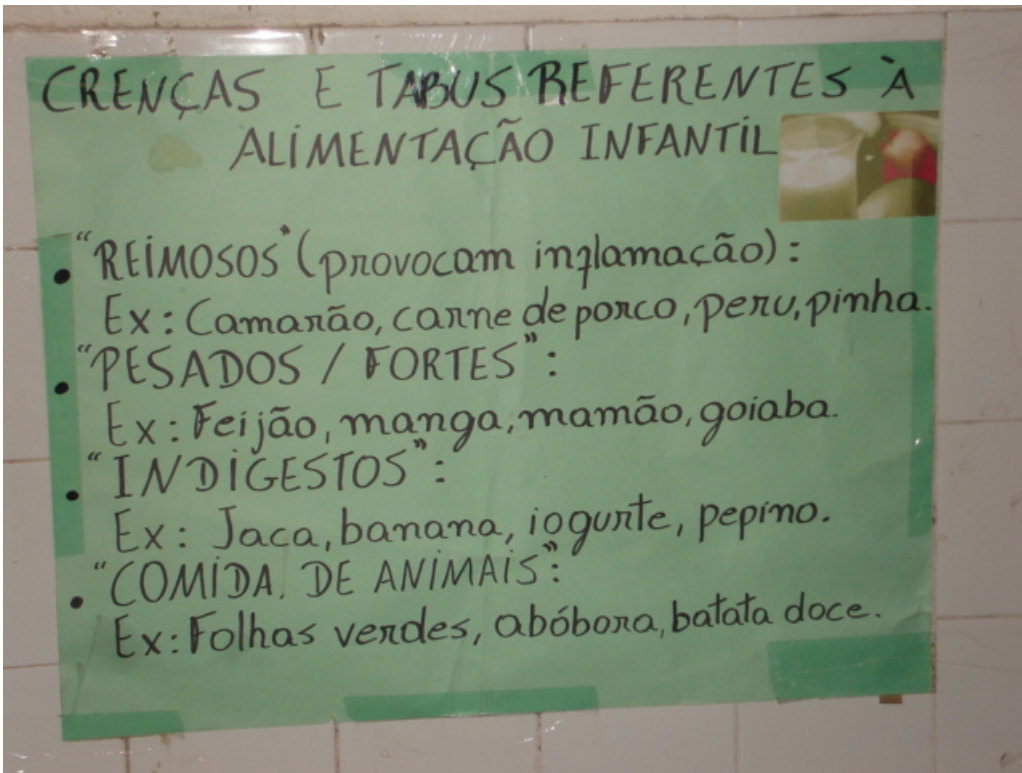 CRENÇAS E TABUS REFERENTES À
ALIMENTAÇÃO INFANTIL
• "REIMOSOS" (provocam inflamação):
Ex: Camarão, carne de porco, peru, pinha.
• "PESADOS / FORTES":
Ex: Feijão, manga, mamão, goiaba.
• "INDIGESTOS":
Ex: Jaca, banana, iogurte, pepino.
• "COMIDA DE ANIMAIS":
Ex: Folhas verdes, abóbora, batata doce.